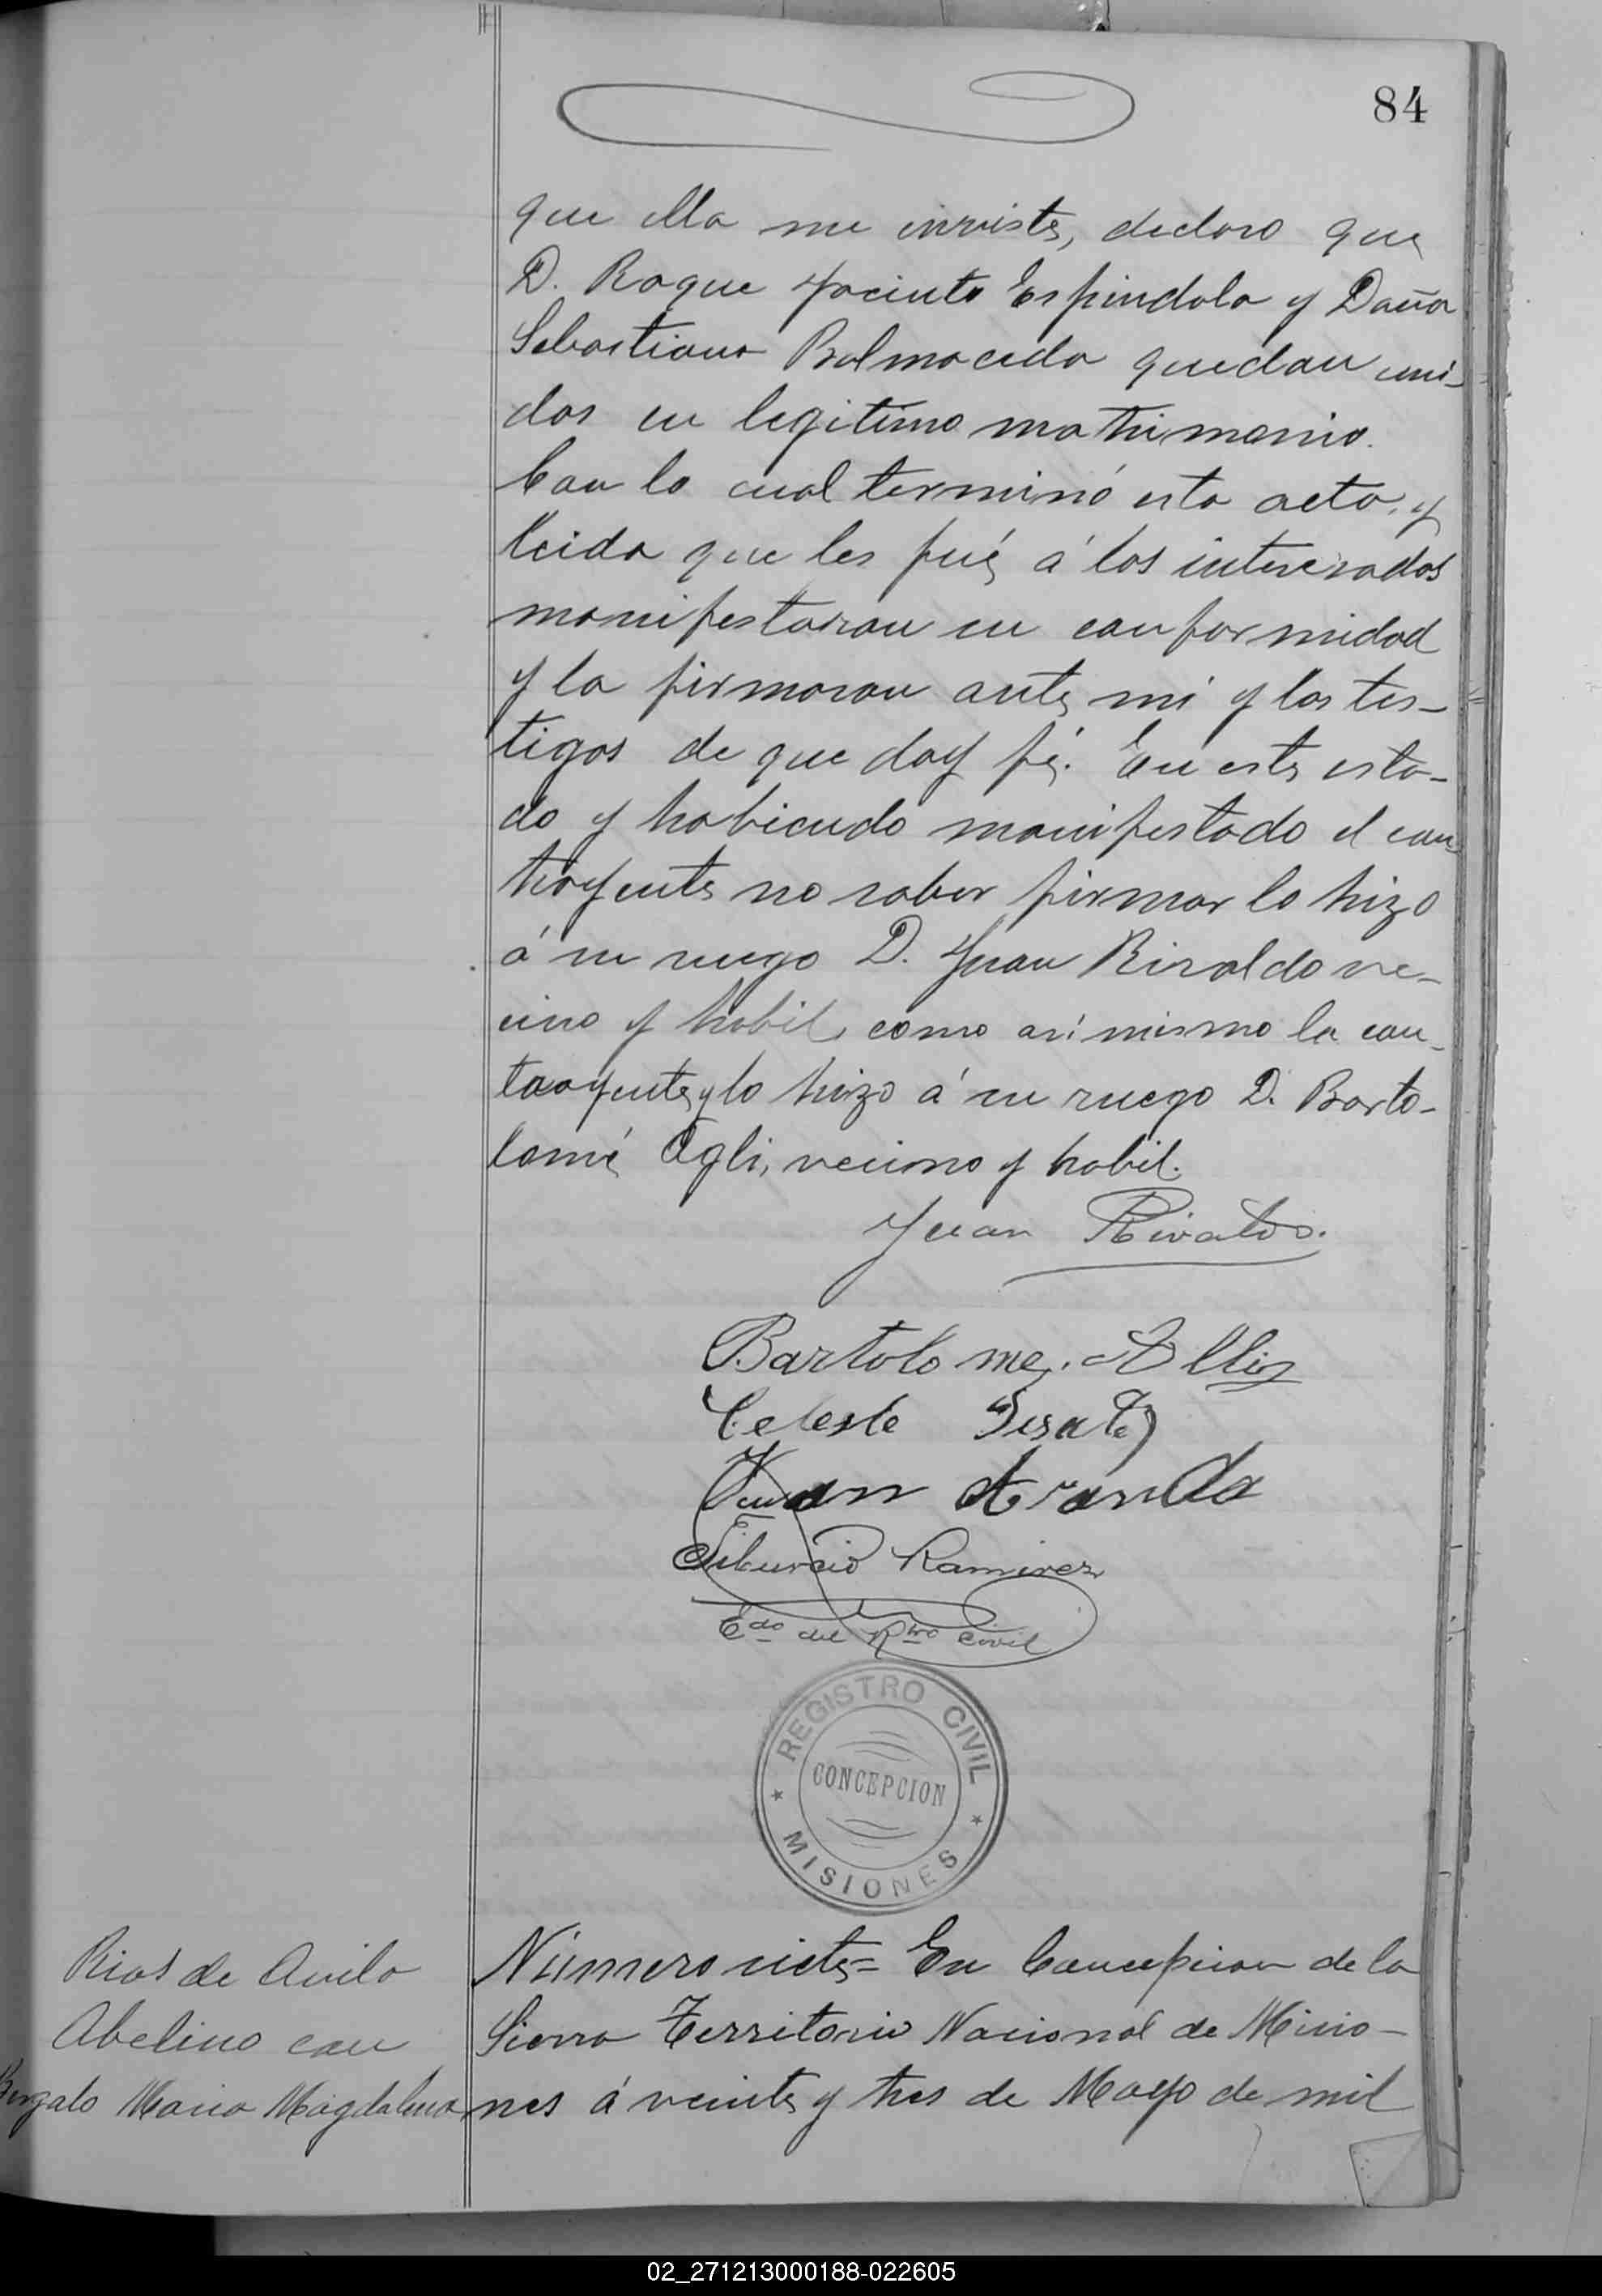 84
que ella me inviste, declaro que
D. Roque Jacinto Espindola y Doña
Sebastiana Balmaceda quedan uni-
dos en legitimo matrimonio.
Con lo cual terminó esta acta, y
leida que les fué á los interesados
manifestaron su conformidad
y la firmaron ante mi y los tes-
tigos de que doy fé. En este esta-
do y habiendo manifestado el con-
trayente no saber firmar lo hizo
á su ruego D. Juan Rivaldo ve-
cino y habil, como asi mismo la con-
trayente y lo hizo á su ruego D. Barto-
lomé Agli, vecino y habil.
Juan Rivaldo.
Bartolome.
Celeste
Juan Aranda
Tiburcio Ramirez
Edo del Rtro Civil
REGISTRO CIVIL
CONCEPCION
MISIONES
Rios de Avila
Abelino con
Maria Magdalena
Número siete= En Concepcion de la
Sierra Territorio Nacional de Misio-
nes á veinte y tres de Mayo de mil
02_271213000188-022605